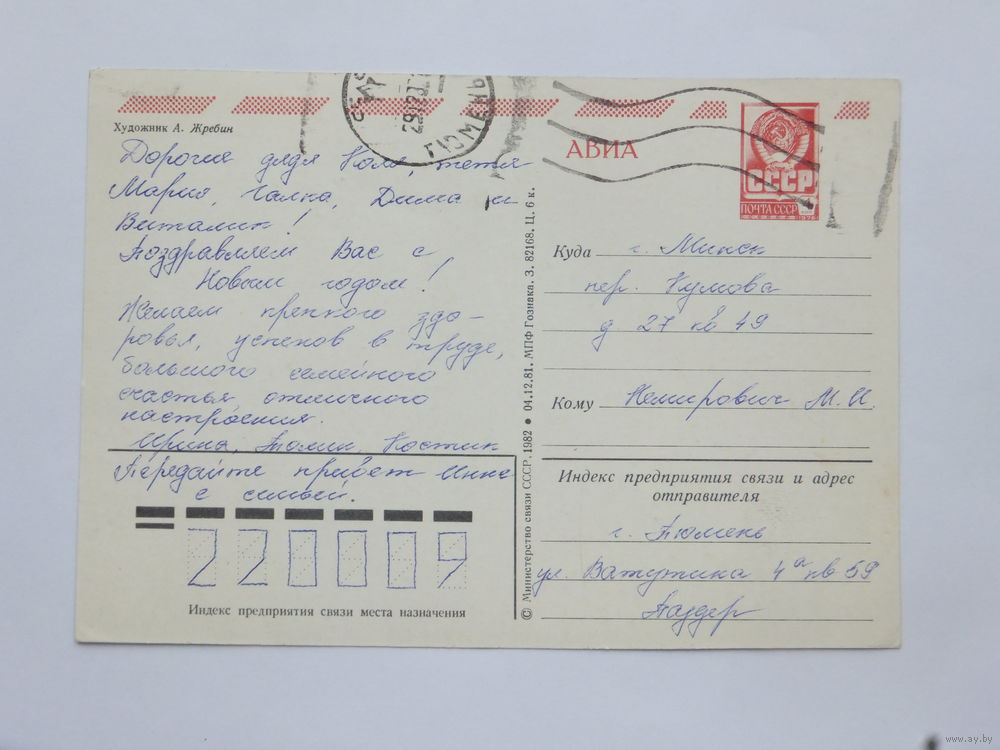 Художник А. Жребин
Дорогие дядя Коля, тётя
Мария, Галка, Дима и
Виталик!
Поздравляем Вас с
Новым годом!
Желаем крепкого здо-
ровья, успехов в труде,
большого семейного
счастья отличного
настроения.
Ирина, Толик, Костик
Передайте привет Инне
с семьёй.
220009
Индекс предприятия связи места назначения
ТЮМЕНЬ
АВИА
СССР
ПОЧТА СССР
© Министерство связи СССР. 1982 • 04.12.81. МПФ Гознака. З. 82168. Ц. 6 к.
Куда г. Минск
пер.
д 27 кв 49
Кому Немирович М.И.
Индекс предприятия связи и адрес
отправителя
г. Тюмень
ул. Ватутина 4а кв 59
Паздер
www.ay.by